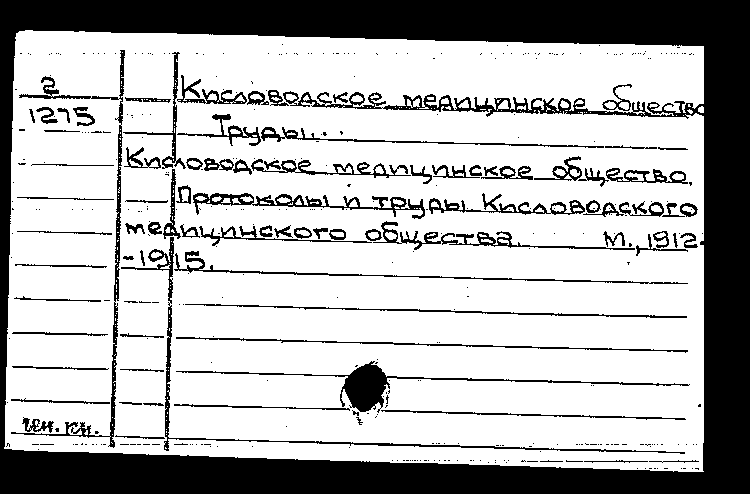 2
1275
Кисловодское медицинское общество
Труды...
Кисловодское медицинское общество.
Протоколы и труды Кисловодского
медицинского общества. М., 1912-
-1915.